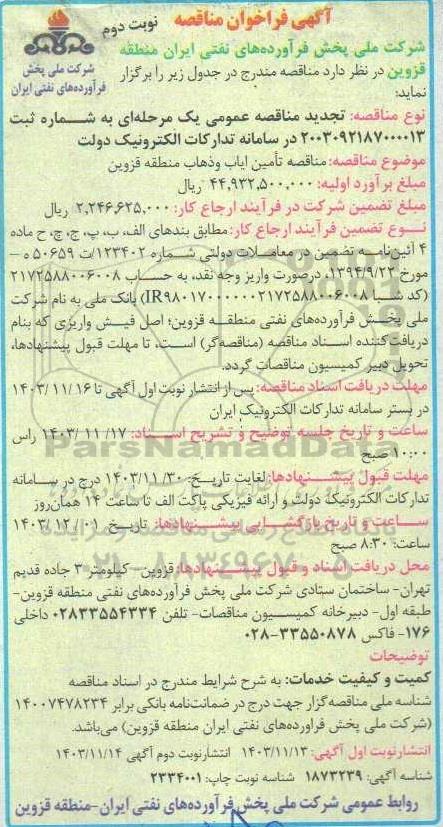 آگهی فراخوان مناقصه نوبت دوم
شرکت ملی پخش
فرآورده‌های نفتی ایران
شرکت ملی پخش فرآورده‌های نفتی ایران منطقه
قزوین در نظر دارد مناقصه مندرج در جدول زیر را برگزار
نماید:
نوع مناقصه: تجدید مناقصه عمومی یک مرحله‌ای به شماره ثبت
۲۰۰۳۰۹۲۱۸۷۰۰۰۰۱۳ در سامانه تدارکات الکترونیک دولت
موضوع مناقصه: مناقصه تأمین ایاب وذهاب منطقه قزوین
مبلغ برآورد اولیه: ۴۴,۹۳۲,۵۰۰,۰۰۰ ریال
مبلغ تضمین شرکت در فرآیند ارجاع کار: ۲,۲۴۶,۶۲۵,۰۰۰ ریال
نوع تضمین فرآیند ارجاع کار: مطابق بندهای الف، ب، پ، ج، چ، ح ماده
۴ آئین‌نامه تضمین در معاملات دولتی شماره ۱۲۳۴۰۲/ت ۵۰۶۵۹ ه –
مورخ ۱۳۹۴/۹/۲۲، درصورت واریز وجه نقد، به حساب ۲۱۷۲۵۸۸۰۰۶۰۰۸
(کد شبا IR۹۸۰۱۷۰۰۰۰۰۰۰۲۱۷۲۵۸۸۰۰۶۰۰۸) بانک ملی به نام شرکت
ملی پخش فرآورده‌های نفتی منطقه قزوین؛ اصل فیش واریزی که بنام
دریافت‌کننده اسناد مناقصه (مناقصه‌گر) است، تا مهلت قبول پیشنهادها،
تحویل دبیر کمیسیون مناقصات گردد.
مهلت دریافت اسناد مناقصه: پس از انتشار نوبت اول آگهی تا ۱۶/ ۱۱/ ۱۴۰۳
در بستر سامانه تدارکات الکترونیک ایران
ساعت و تاریخ جلسه توضیح و تشریح اسناد: ۱۷/ ۱۱/ ۱۴۰۳ راس
۱۰:۰۰ صبح
مهلت قبول پیشنهادها: لغایت تاریخ: ۳۰/ ۱۴۰۳/۱۱ درج در سامانه
تدارکات الکترونیک دولت و ارائه فیزیکی پاکت الف تا ساعت ۱۴ همان‌روز
ساعت و تاریخ بازگشایی پیشنهادها: تاریخ ۰۱/ ۱۲/ ۱۴۰۳
ساعت: ۸:۳۰ صبح
محل دریافت اسناد و قبول پیشنهادها: قزوین- کیلومتر ۳ جاده قدیم
تهران- ساختمان ستادی شرکت ملی پخش فرآورده‌های نفتی منطقه قزوین-
طبقه اول- دبیرخانه کمیسیون مناقصات- تلفن ۰۲۸۳۳۵۵۴۳۳۴ داخلی
۱۷۶- فاکس ۳۳۵۵۰۸۷۸-۰۲۸
توضیحات
کمیت و کیفیت خدمات: به شرح شرایط مندرج در اسناد مناقصه
شناسه ملی مناقصه‌گزار جهت درج در ضمانت‌نامه بانکی برابر ۱۴۰۰۷۴۷۸۲۳۴
(شرکت ملی پخش فراورده‌های نفتی ایران منطقه قزوین) می‌باشد.
انتشارنوبت اول آگهی: ۱۴۰۳/۱۱/۱۳ انتشارنوبت دوم آگهی ۱۴۰۳/۱۱/۱۴
شناسه آگهی: ۱۸۷۳۲۳۹ شناسه نوبت چاپ: ۲۳۳۴۰۰۱
روابط عمومی شرکت ملی پخش فرآورده‌های نفتی ایران-منطقه قزوین
ParsNamadData
۰۲۱-۸۸۳۴۹۶۷۰